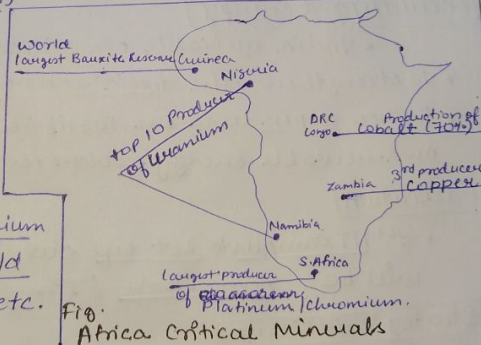 World
largest Bauxite Reserve Guinea
Nigeria
top 10 Producer
of Uranium
DRC
Congo
Production of
Cobalt (70%)
Zambia
3rd producer
Copper
Namibia
S.Africa
largest producer
of
Platinum/chromium.
ium
ld
etc.
Fig.
Africa Critical Minerals